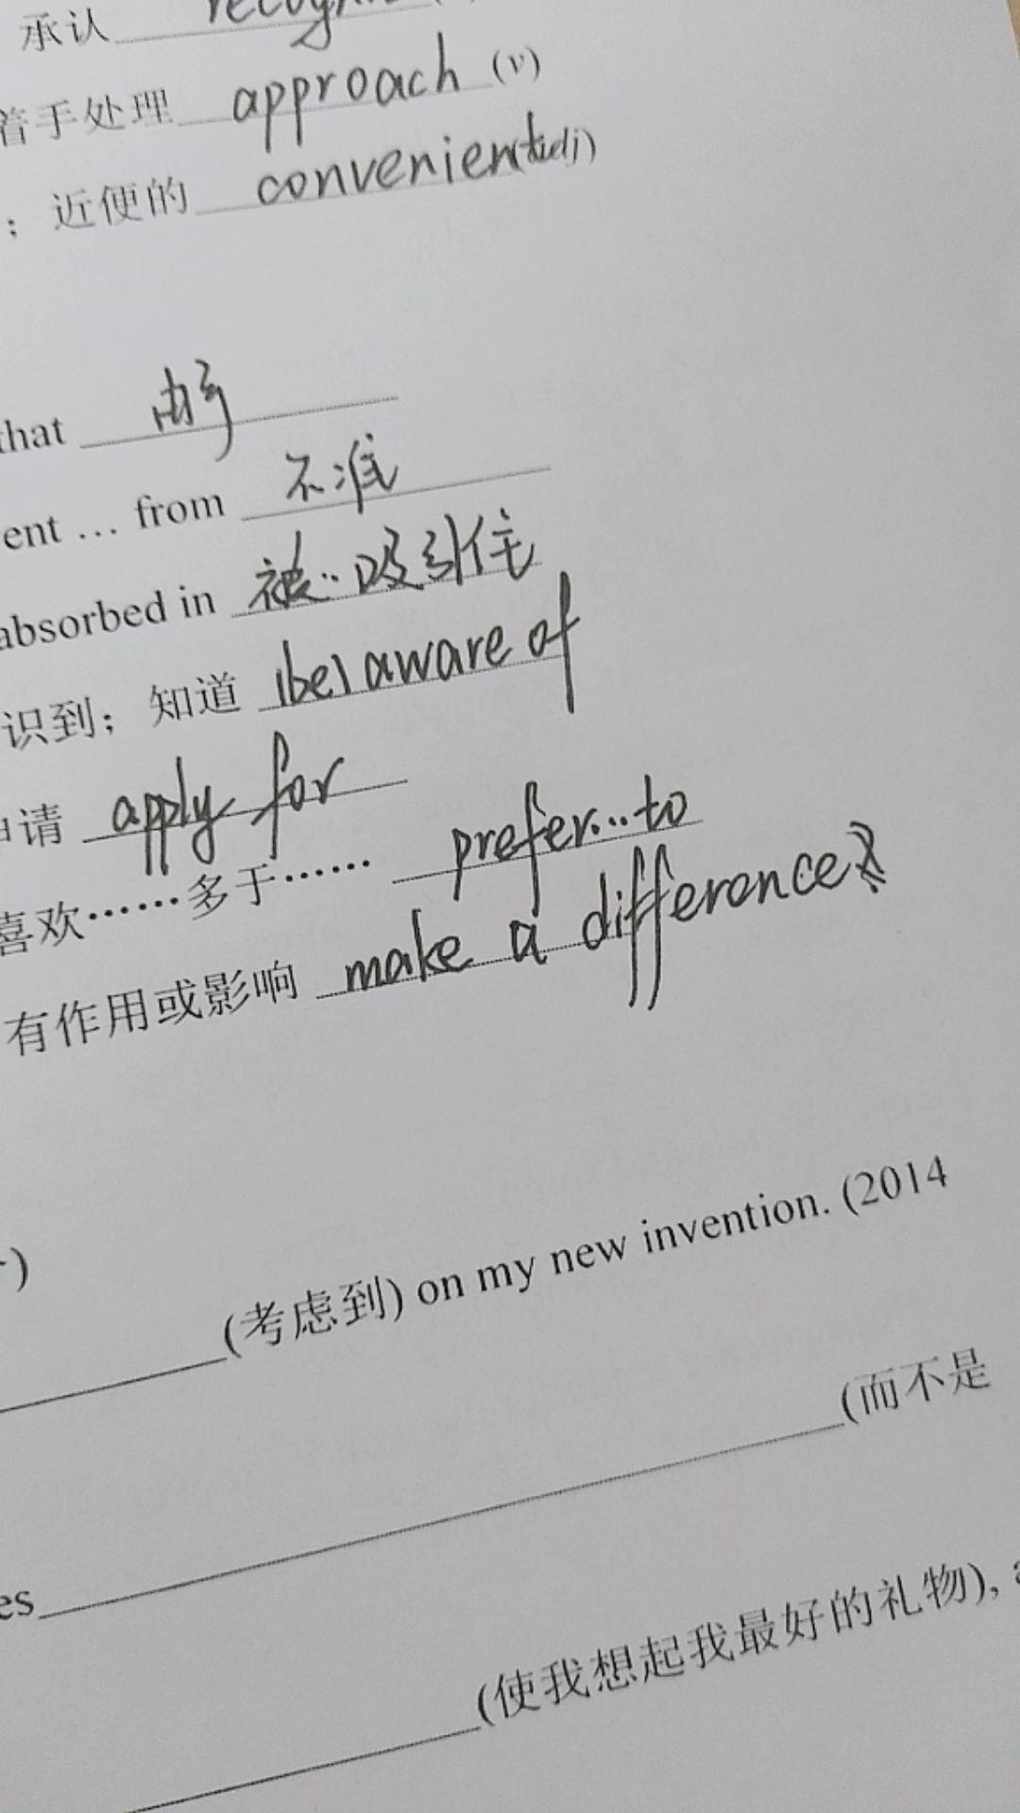 承认
着手处理 approach (v)
；近便的 convenient(adj)
that 由于
ent … from 不准
absorbed in 被…吸引住
识到；知道 (be) aware of
申请 apply for
喜欢……多于…… prefer...to
有作用或影响 make a difference
)
(考虑到) on my new invention. (2014
(而不是
es
(使我想起我最好的礼物),